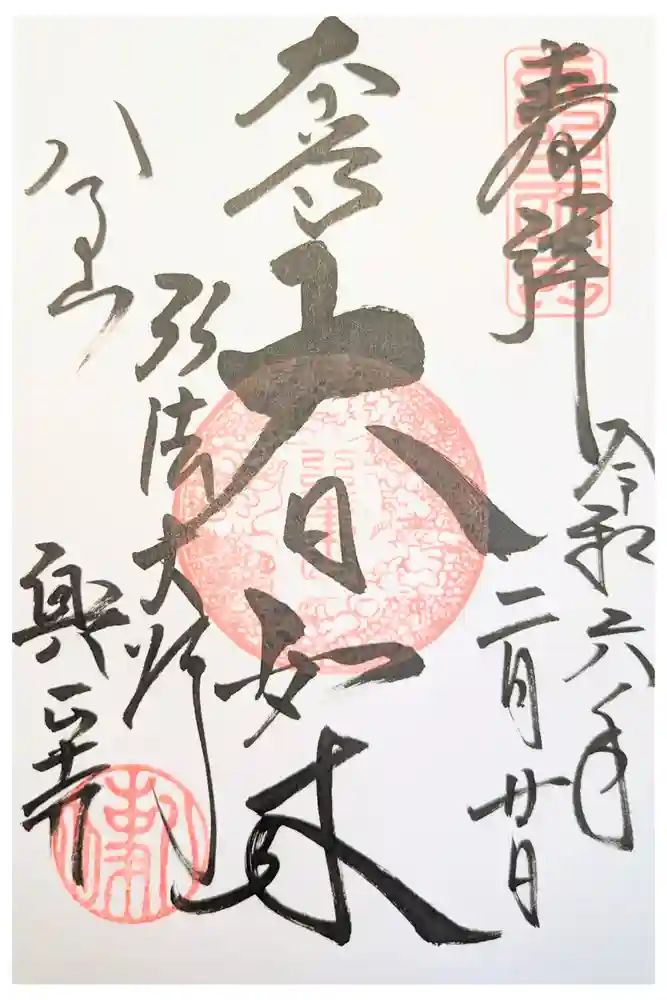 奉拝
令和六年
二月廿日
大日如来
弘法大師
八事山
興正寺